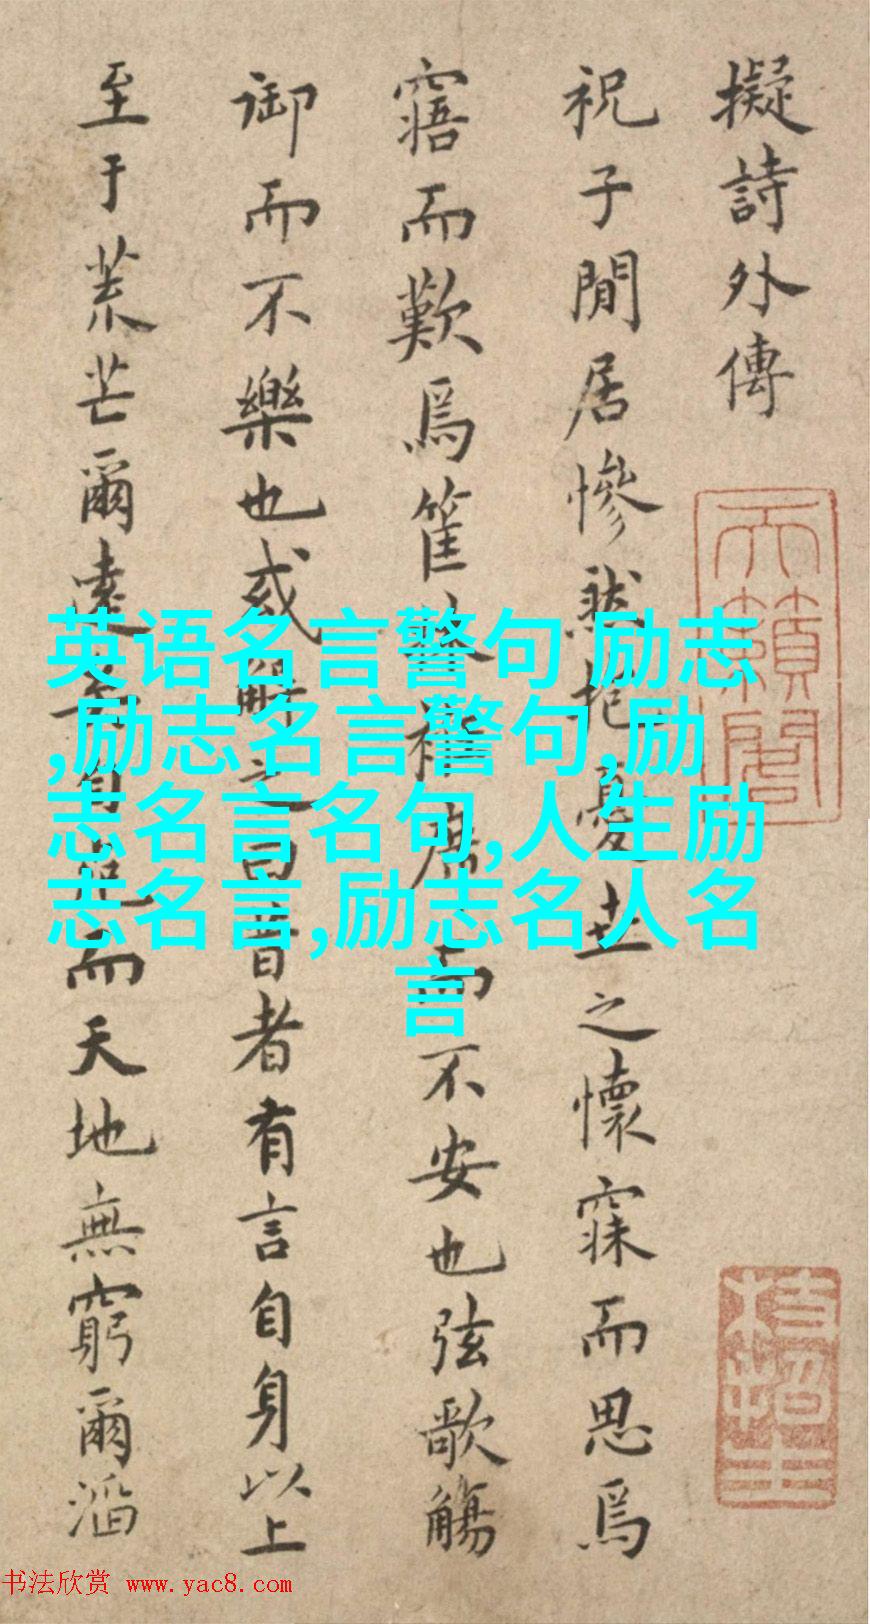 擬詩外傳
祝子閒居慘然抱憂世之懷寐而思焉
寤而歎焉筐衾袵席而不安也弦歌觴
御而不樂也或解之曰昔者有言自身以上
至于荒芒爾遠矣自而天地無窮爾滔
天籟閣
英语名言警句 励志
,励志名言警句,励
志名言名句,人生励
志名言,励志名人名
言
书法欣赏 www.yac8.com